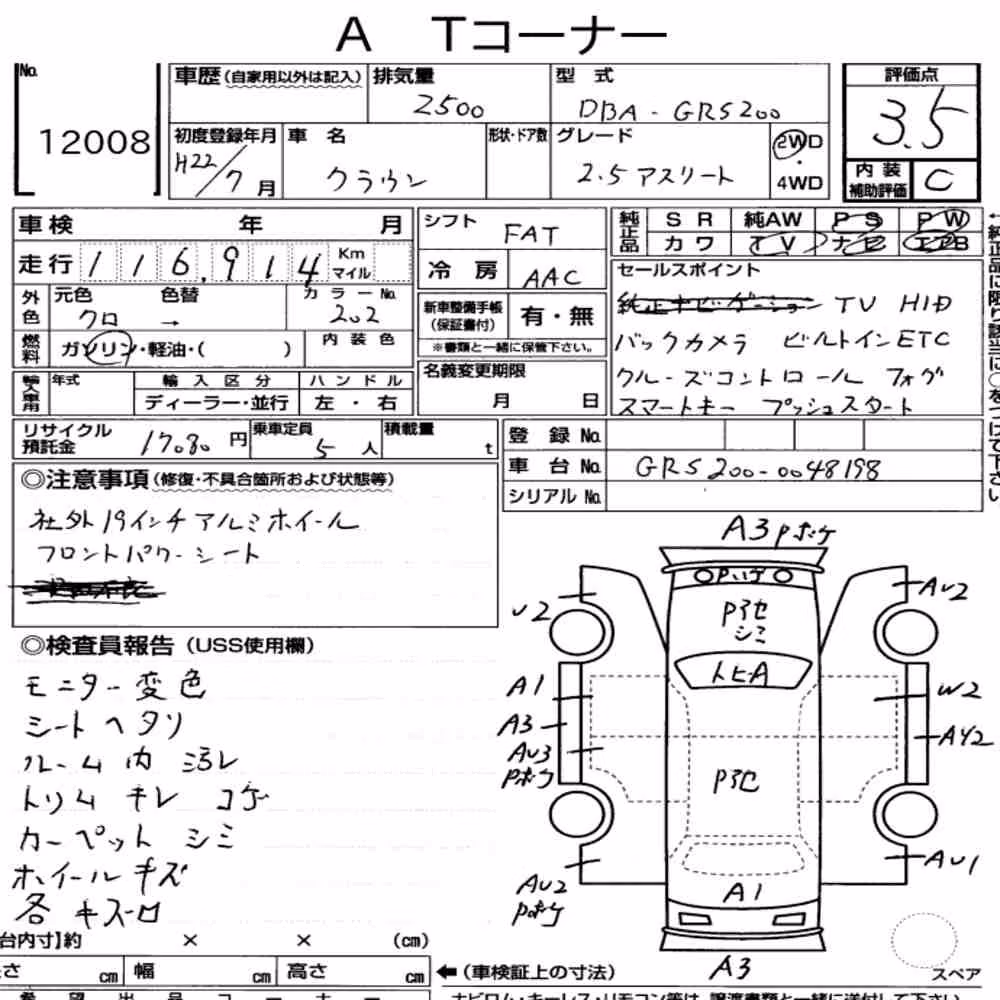 A Tコーナー
No. 12008
車歴(自家用以外は記入) 排気量 2500 型式 DBA-GRS200
初度登録年月 H22/7月 車名 クラウン 形状・ドア数 グレード 2.5 アスリート 2WD・4WD
評価点 3.5
内装補助評価 C
車検 年 月
走行 116,914 Km マイル
外色 元色 クロ 色替 → カラーNo. 202
燃料 ガソリン・軽油・( ) 内装色
輸入車用 年式 輸入区分 ディーラー・並行 ハンドル 左・右
シフト FAT
冷房 AAC
新車整備手帳(保証書付) 有・無
※書類と一緒に保管下さい。
名義変更期限 月 日
純正品 SR 純AW PS PW
カワ TV ナビ エアB
セールスポイント
純正ナビゲーション TV HID
バックカメラ ビルトインETC
クルーズコントロール フォグ
スマートキー プッシュスタート
←純正品に限り該当に○をつけて下さい。
リサイクル預託金 17080円 乗車定員 5人 積載量 t
登録No.
車台No. GRS200-0048198
シリアルNo.
◎注意事項(修復・不具合箇所および状態等)
社外19インチアルミホイール
フロントパワーシート
◎検査員報告(USS使用欄)
モニター変色
シートヘタリ
ルーム内汚レ
トリムキレ コゲ
カーペットシミ
ホイールキズ
各キズ一口
A3 Pボケ
Pハゲ
P3セ
シミ
トヒ-A
U2
AU2
A1
A3
AU3
Pボケ
W2
AY2
P3セ
AU2
Pボケ
AU1
A1
A3
スペア
台内寸】約 × × (cm)
さ cm 幅 cm 高さ cm
←(車検証上の寸法)
希望出品コーナー
ナビロム・キーレス・リモコン等は、譲渡書類と一緒に送付して下さい。